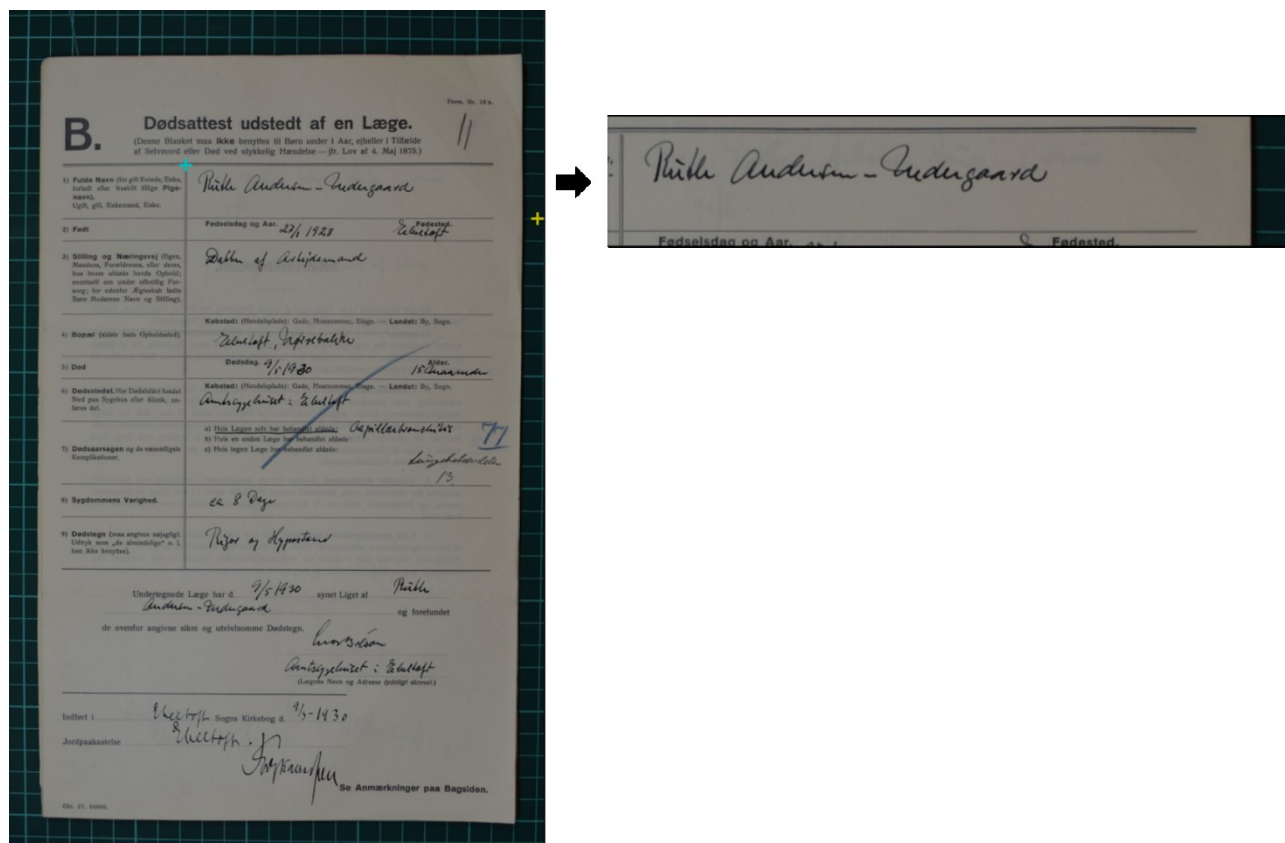 Form. Nr. 14 a.
B.
Dødsattest udstedt af en Læge.
11
(Denne Blanket maa ikke benyttes til Børn under 1 Aar, ejheller i Tilfælde
af Selvmord eller Død ved ulykkelig Hændelse — jfr. Lov af 4. Maj 1875.)
1) Fulde Navn (for gift Kvinde, Enke,
fraladt eller fraskilt tillige Pige-
navn).
Ugift, gift, Enkemand, Enke.
Ruth Andersen - Vedergaard
2) Født
Fødselsdag og Aar. 27/1 1929
Fødested. Ebeltoft
3) Stilling og Næringsvej (Egen,
Mandens, Forældrenes, eller deres,
hos hvem afdøde havde Ophold;
eventuelt om under offentlig For-
sorg; for udenfor Ægteskab fødte
Børn Moderens Navn og Stilling).
Datter af Arbejdsmand
4) Bopæl (sidste faste Opholdssted).
Købstad: (Hovedsplads): Gade, Husnummer, Etage. — Landet: By, Sogn.
Ebeltoft,
5) Død
Dødsdag. 9/5 1930
Alder. 15 Maaneder
6) Dødsstedet. Har Dødsfaldet fundet
Sted paa Sygehus eller Klinik, an-
føres det.
Købstad: (Hovedsplads): Gade, Husnummer, Etage. — Landet: By, Sogn.
Amtssygehuset i Ebeltoft
7) Dødsaarsagen og de væsentligste
Komplikationer.
a) Hvis Lægen selv har behandlet afdøde: Capillærbronchitis
b) Hvis en anden Læge har behandlet afdøde:
c) Hvis ingen Læge har behandlet afdøde:
77
13.
8) Sygdommens Varighed.
ca 8 Dage
9) Dødstegn (maa angives nøjagtigt.
Udtryk som „de almindelige" o. l.
kan ikke benyttes).
Rigor og Hypostaser
Undertegnede Læge har d. 9/5 1930 synet Liget af Ruth
Andersen - Vedergaard og forefundet
de ovenfor angivne sikre og utvivlsomme Dødstegn.
Amtssygehuset i Ebeltoft
(Lægens Navn og Adresse tydeligt skrevet.)
Indført i Ebeltoft Sogns Kirkebog d. 9/5-1930
Jordpaakastelse Ebeltoft.
Se Anmærkninger paa Bagsiden.
Okt. 27. 50000.
Ruth Andersen - Vedergaard
Fødselsdag og Aar.
Fødested.